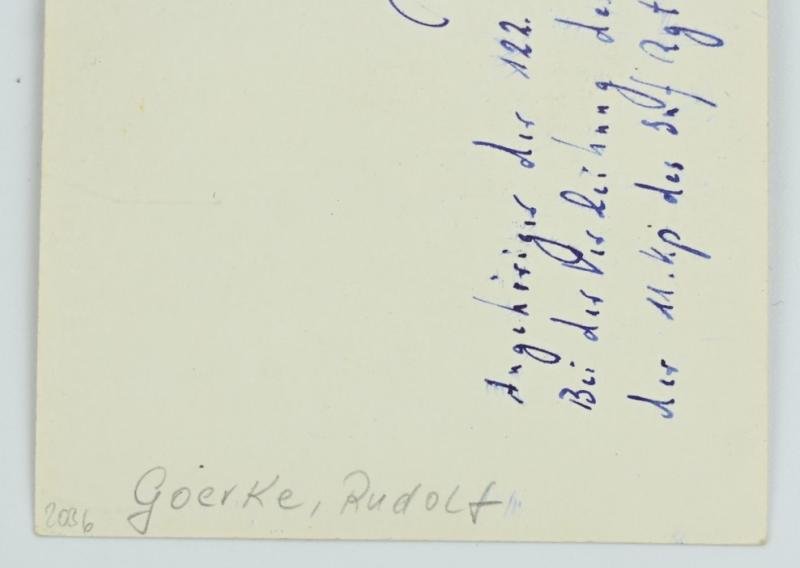 Angehöriger der 122.
Bei der Verleihung des
der 11. Kp des Inf Rgt
Goerke, Rudolf
2036